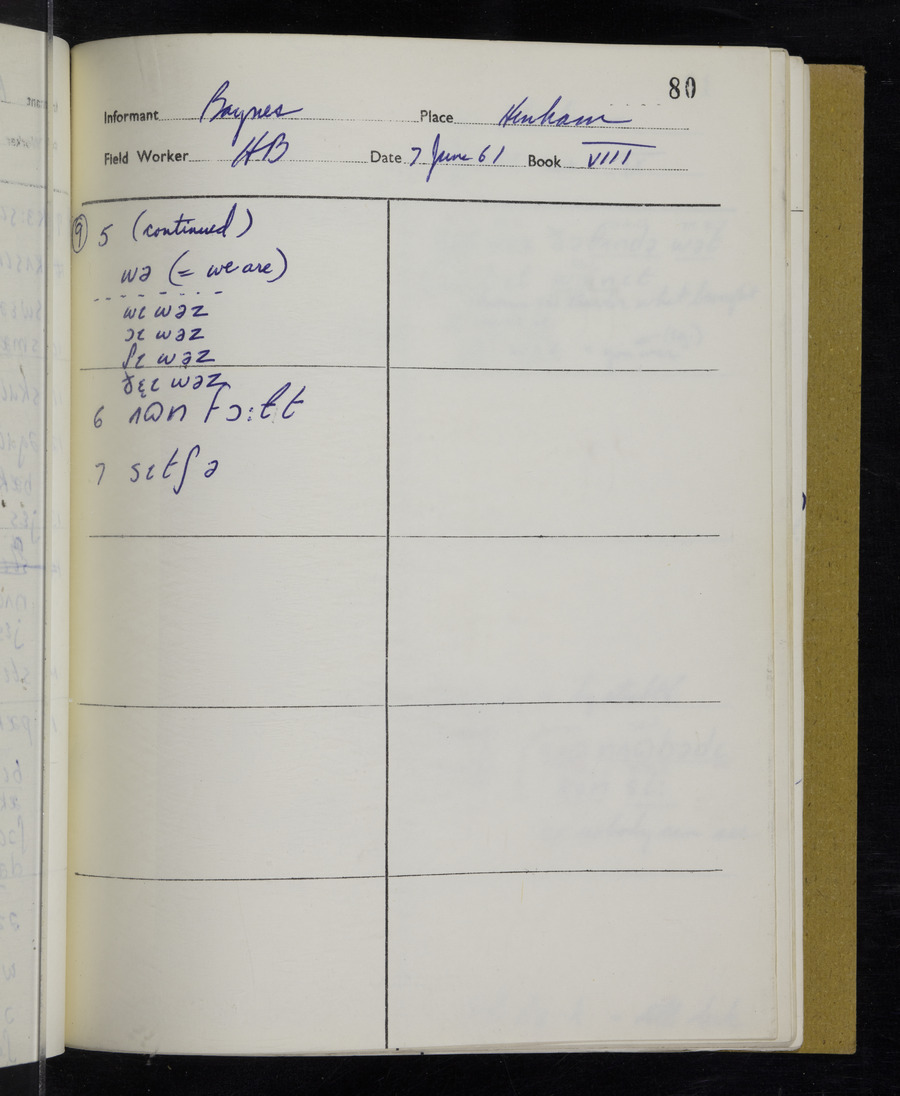 80
Informant Baynes Place Henham
Field Worker HB Date 7 June 61 Book VIII
⑨ 5 (continued)
wə (= we are)
wɪ wəz
ɪ wəz
ʃɪ wəz
ðɛɪ wəz
6 fɔ:ɫt
7 sɪtʃ ə